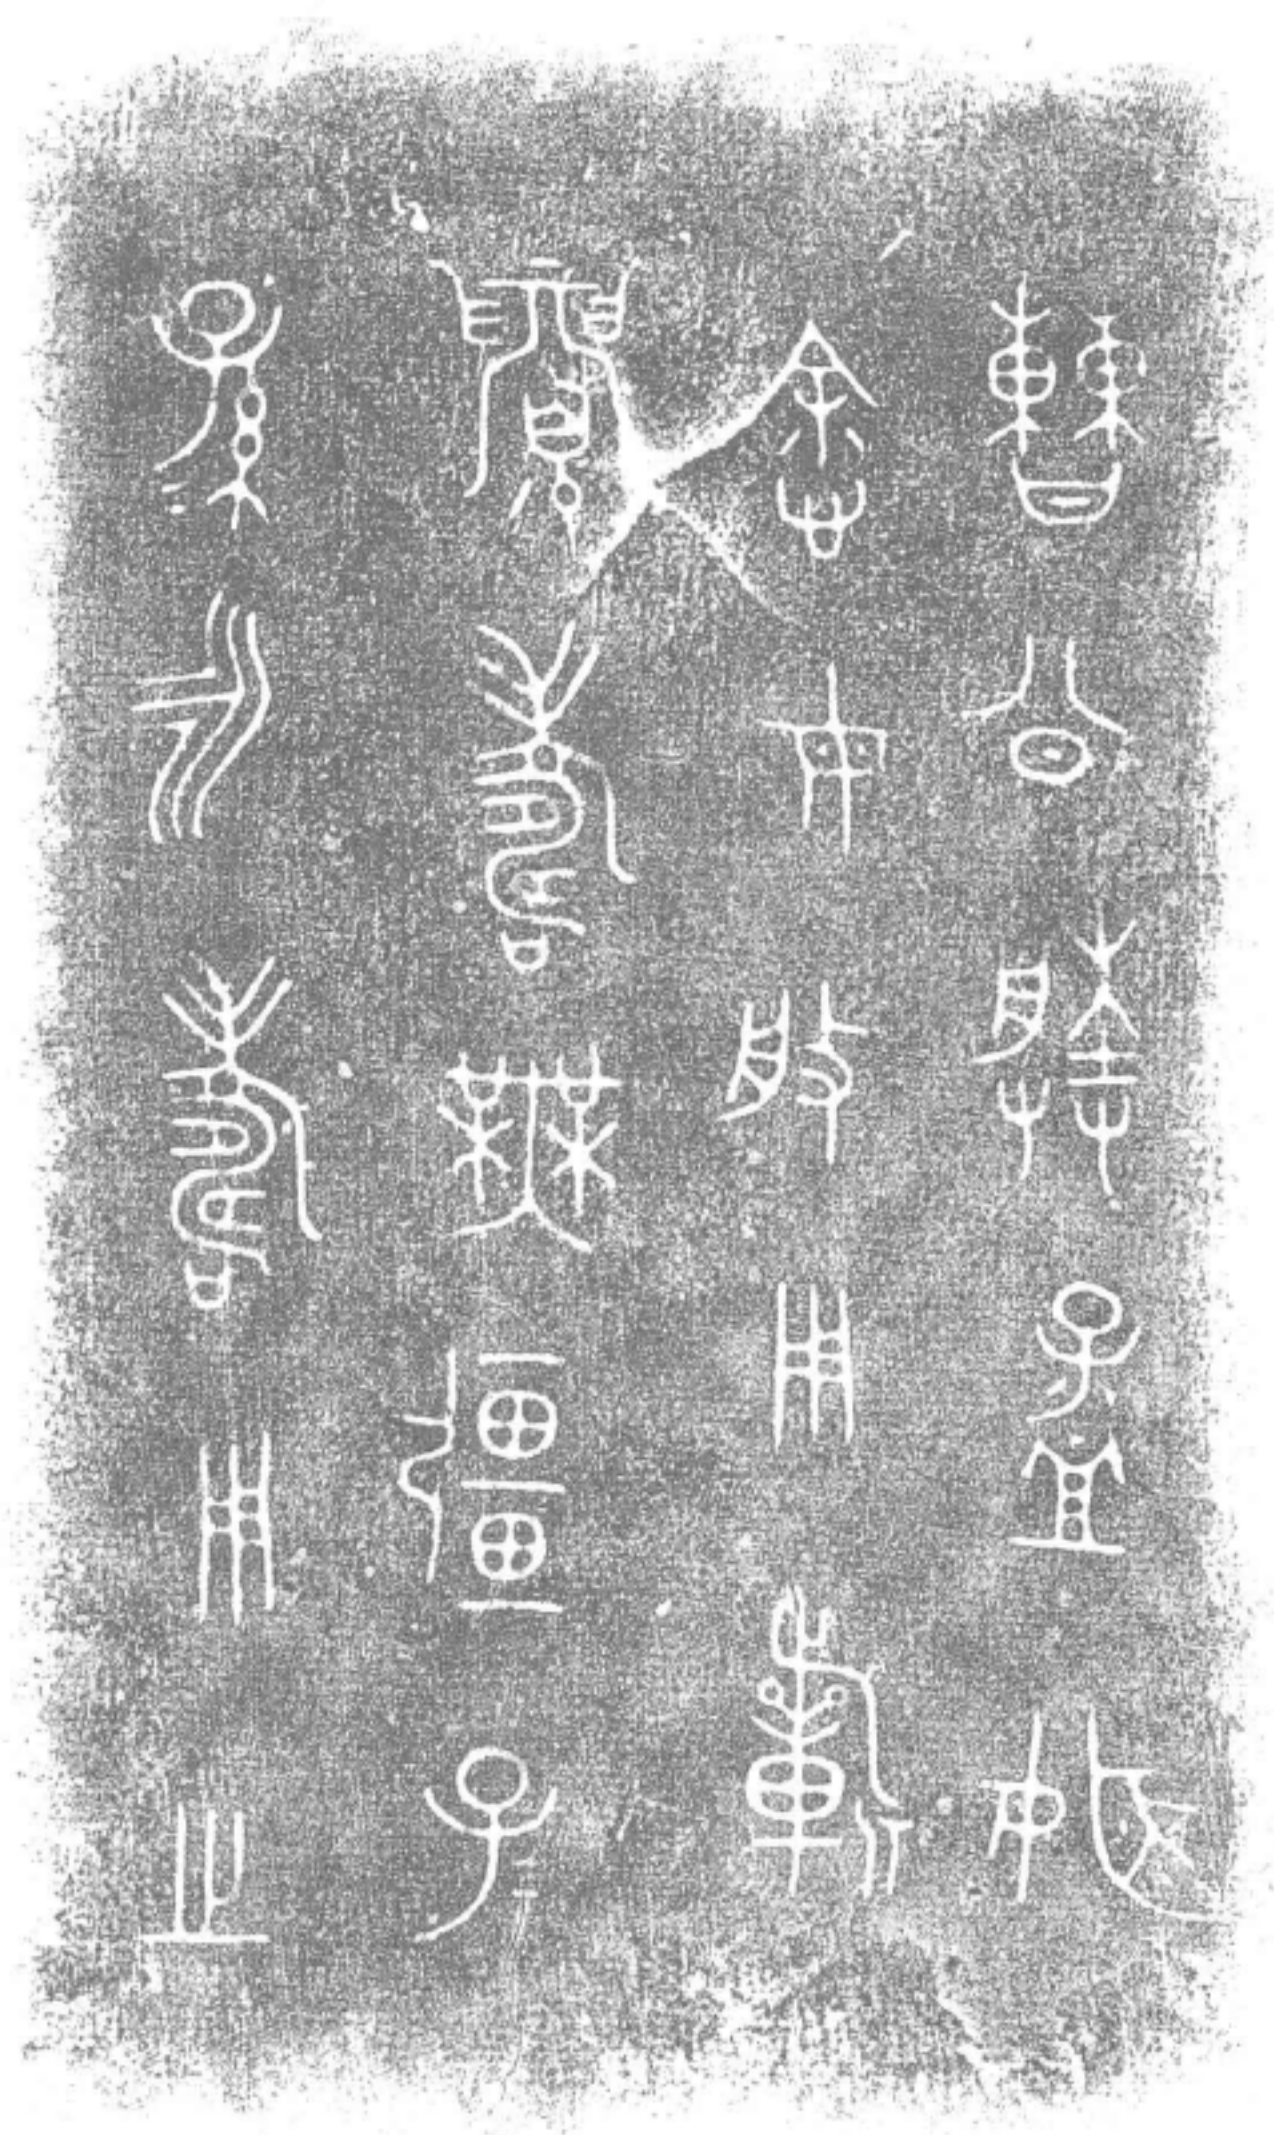 曹公媵孟姬
悆母盤用祈
眉壽無疆子=
孫=永壽用之